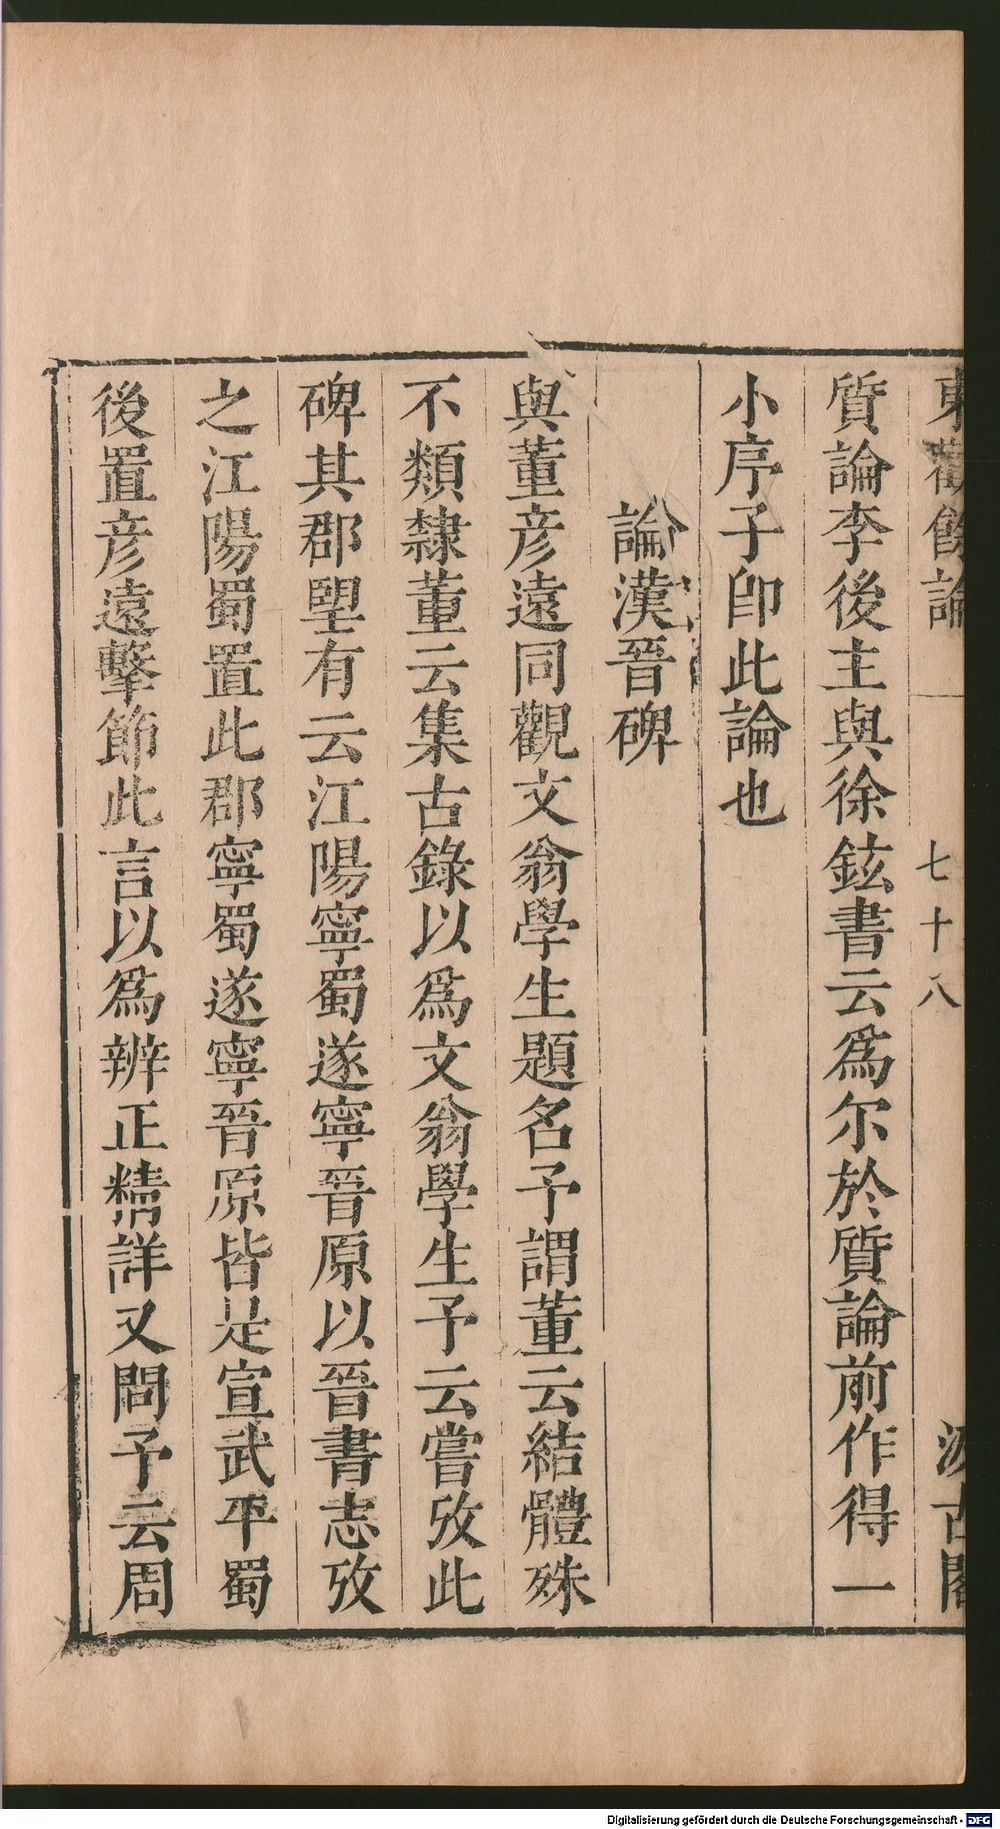 東觀餘論　七十八　汲古閣
質論李後主與徐鉉書云爲尔於質論前作得一
小序子卽此論也
論漢晉碑
與董彦遠同觀文翁學生題名予謂董云結體殊
不類隸董云集古錄以爲文翁學生予云嘗攷此
碑其郡朢有云江陽寧蜀遂寧晉原以晉書志攷
之江陽蜀置此郡寧蜀遂寧晉原皆是宣武平蜀
後置彦遠擊節此言以爲辨正精詳又問予云周
Digitalisierung gefördert durch die Deutsche Forschungsgemeinschaft - DFG